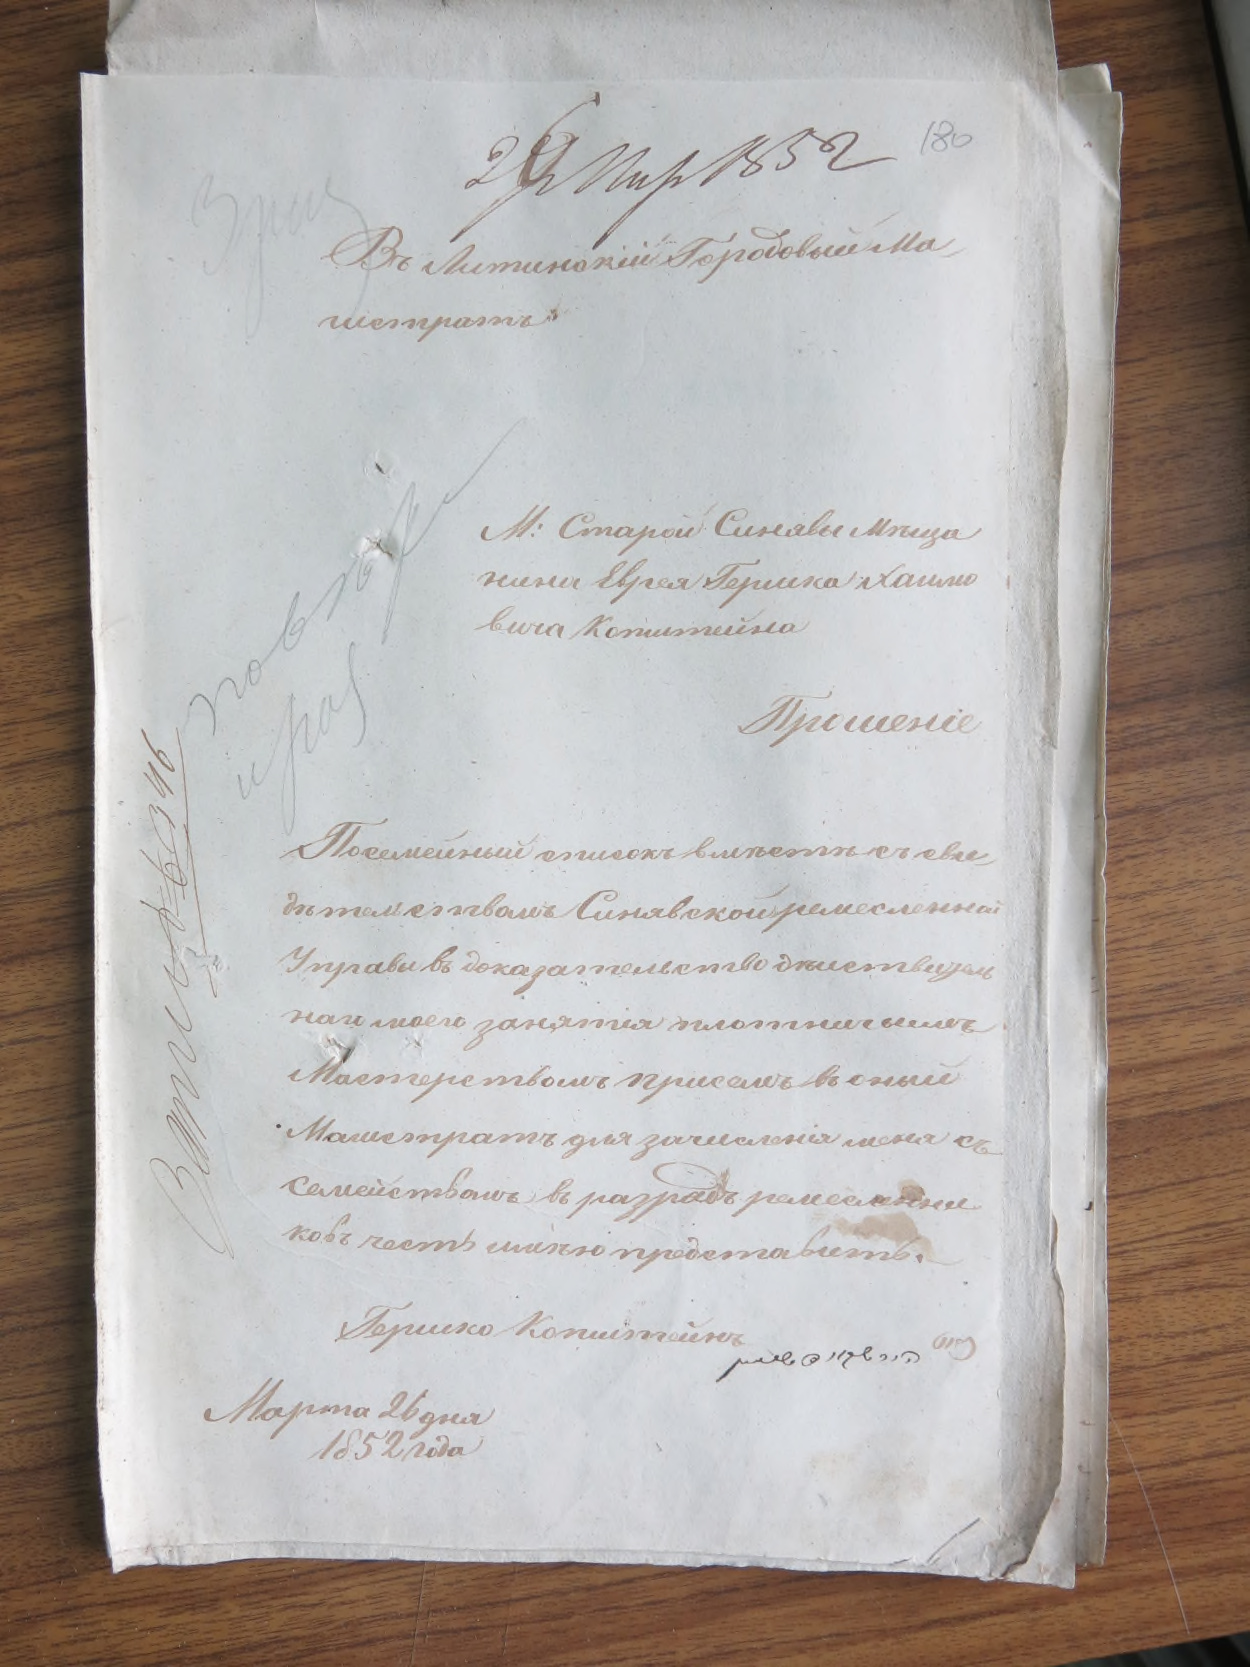 26 Мар 1852
180
Въ Литинскій Городовый Ма,
гистратъ
М: Старой Синявы Мѣща
нина Еврея Гершка Хаимо
вича Копштейна
Прошеніе
Посемейный списокъ вмѣстѣ съ сви,
дѣтельствомъ Синявской ремесленной
Управы въ доказательство дѣиствитель
наго моего занятія плотничьимъ
Мастерствомъ присемъ въ оный
Магистратъ для зачисленія меня съ
Семействомъ въ разрядъ ремесленни
ковъ честь имѣю представить.
Гершко Копштейнъ
Марта 26 дня
1852 года